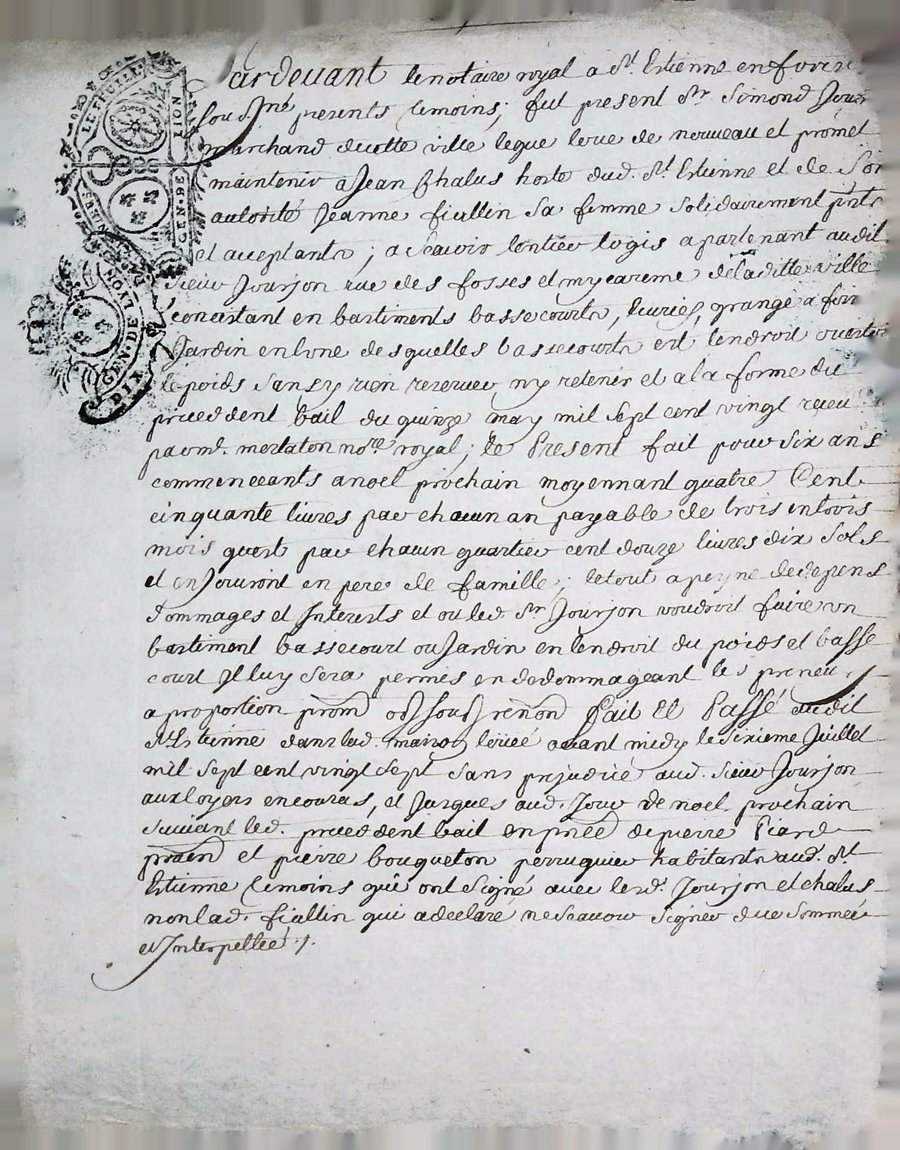 LE FEUILLE
GEN · DE LION
GEN · DE LYON
DIX
Pardevant le notaire royal a St. Estienne en forez
soussigné presents temoins; fut present Sr. Simond Jour
marchand de cette ville lequel loüe de nouveau et promet
maintenir a Jean Chalus hoste dud. St. Estienne et de son
autorité Jeanne fiallin sa femme solidairement pnts
et acceptants; a scauoir l'entier logis apartenant audit
sieur Jourjon rue des fosses et mycareme de laditte ville
concistant en bastiments bassecourts, ecuries, grange a foin
Jardin en l'une desquelles bassecourts est l'endroit ou estoit
le poids sans y rien reserver ny retenir et a la forme du
precedent bail du quinze may mil sept cent vingt receu
par me. mortaton nore. royal; le Present fait pour six ans
commenceants a noel prochain moyennant quatre Cent
cinquante livres par chacun an payable de trois en trois
mois quest par chacun quartier cent douze livres dix sols
et en Jouiront en pere de famille; le tout a peyne de depens
dommages et Interests et ou led. Sr. Jourjon voudroit faire un
bastiment bassecourt ou Jardin en lendroit du poids et basse
court Il luy sera permis en dedommageant les preneurs
a proportion prom obs soub renon fait Et Passé audit
St. Estienne dans lad. maison loüée avant midy le sixieme Juillet
mil sept cent vingt sept sans prejudice aud. sieur Jourjon
aux loyers encourus, et Jusques aud. Jour de noel prochain
suivant led. precedent bail en pnce de pierre Piard
praen et pierre bouqueton perruquier habitants aud. St.
Estienne temoins qui ont signé avec lesd. Jourjon et chalus
non lad. fiallin qui a declaré ne scauoir signer due sommée
et Interpellée ./.